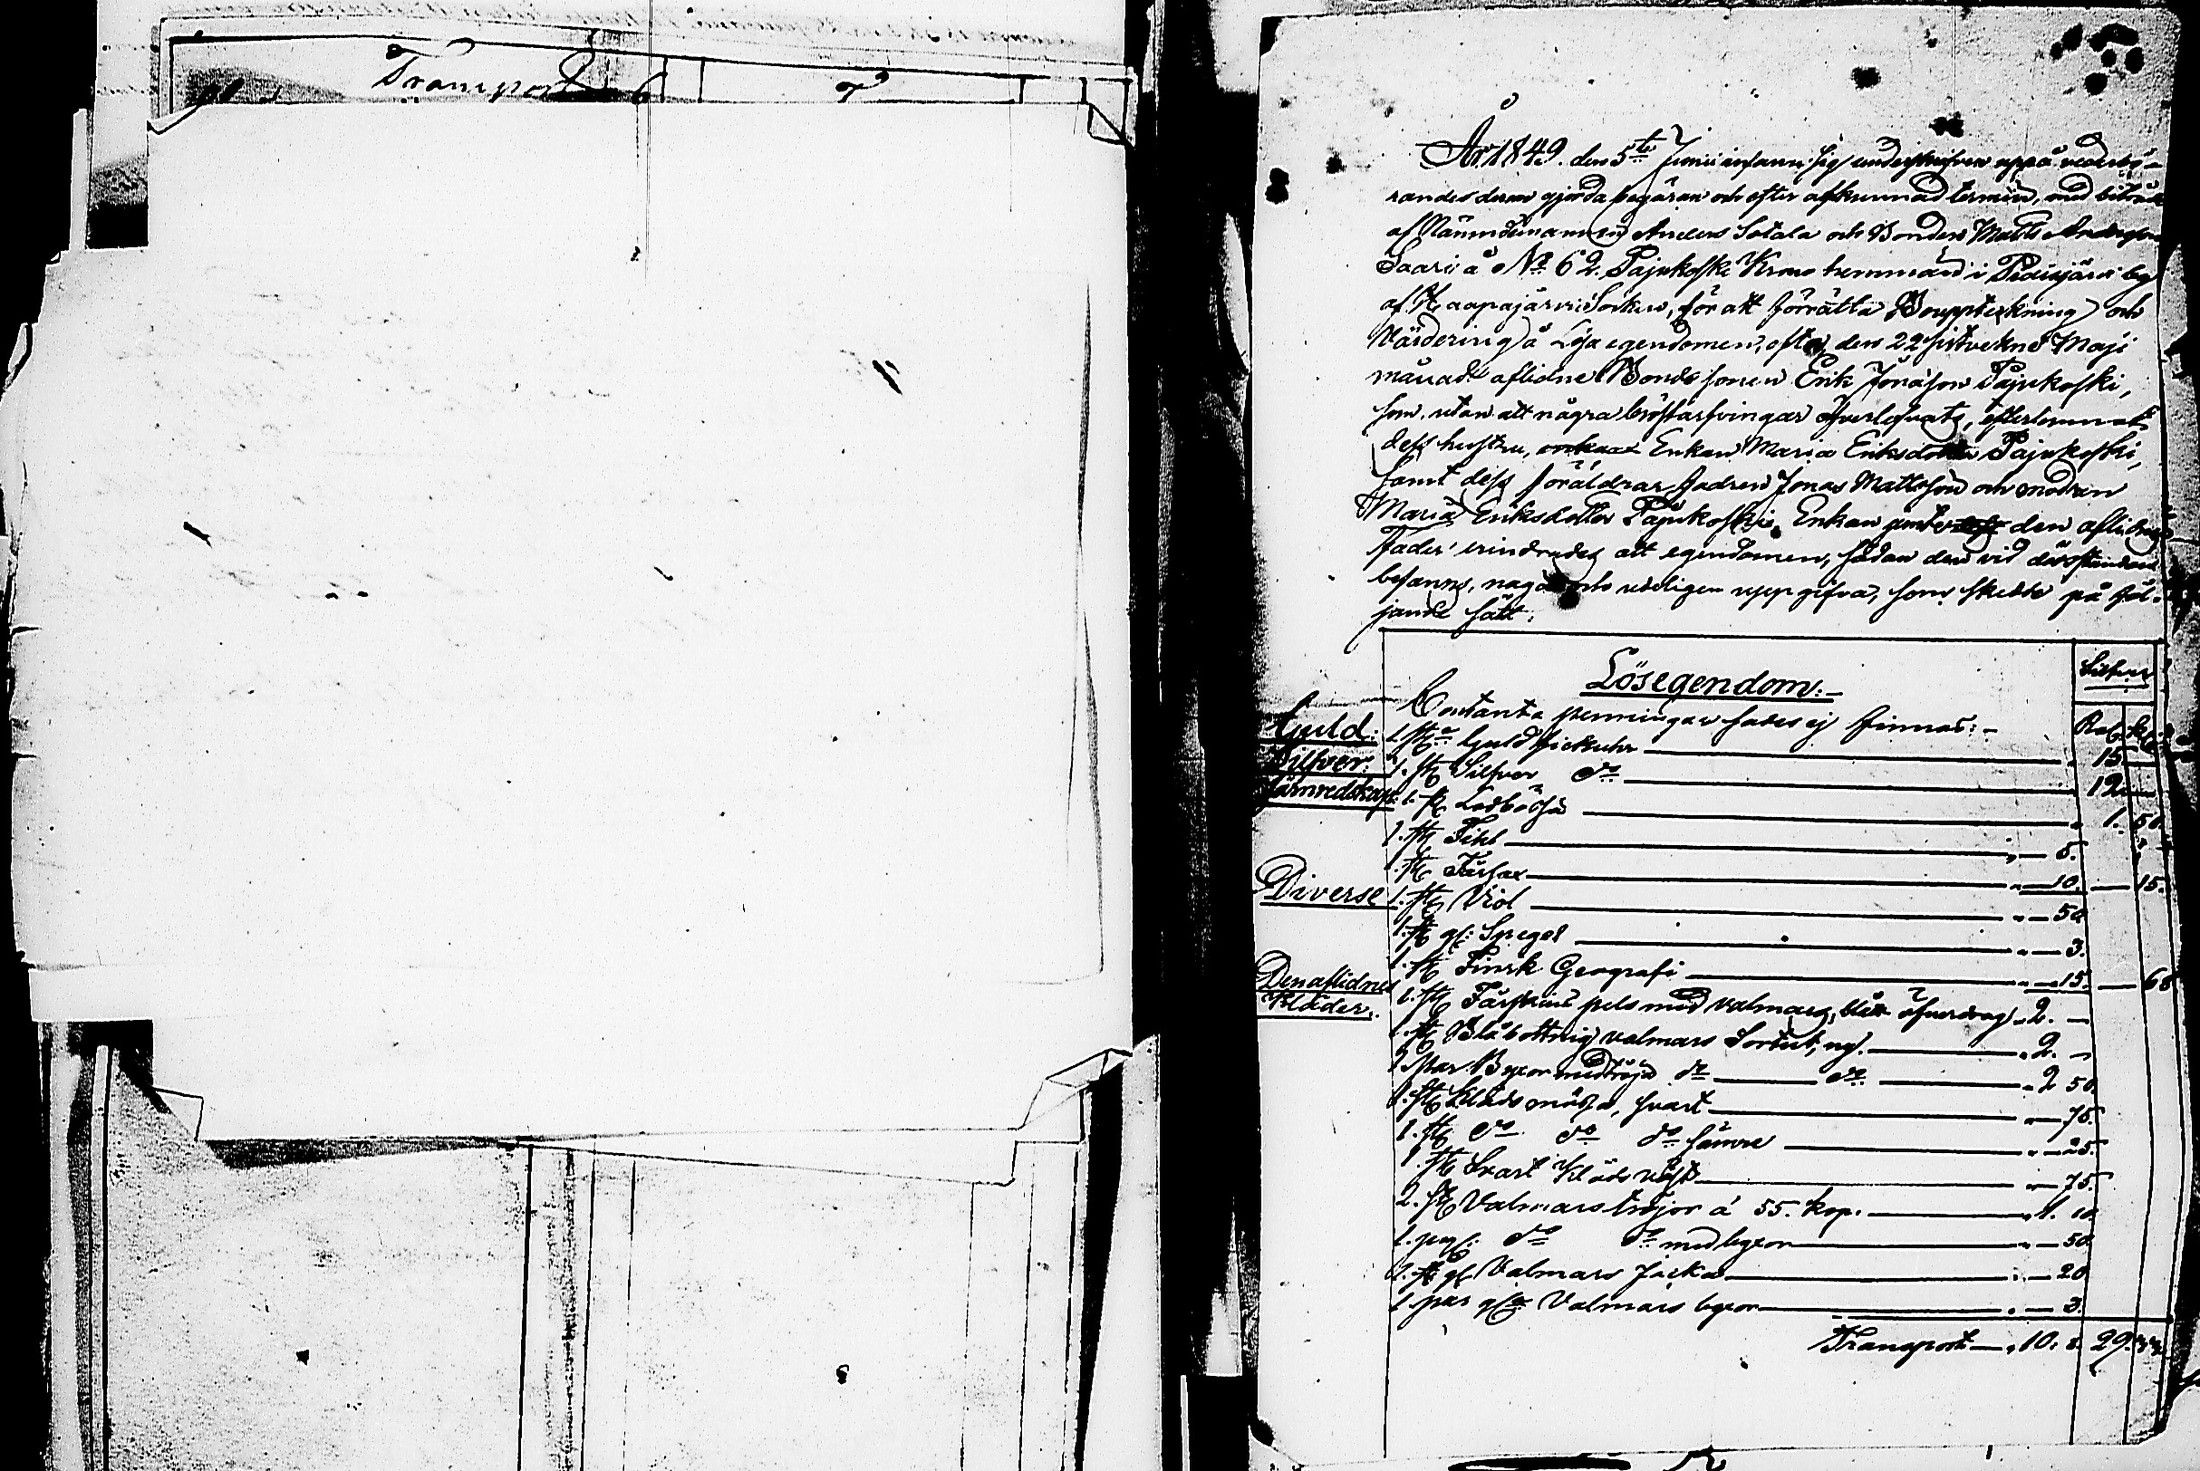 Transport 6
År 1849. den 5te Junii infann sig underskrifven uppå vederbö-
randes derom gjorda begäran och efter afkunnad termin, med biträde
af Nämndemannen Anders Sotala och Bonden Matts Andersson
Saari å No 62. Pajukoski Krono hemman i byn
af Haapajärvi Socken, för att förrätta Bouppteckning och
Värdering å Lösa egendomen, efter den 22 sistvekne Maji
månad aflidne Bondesonen Erik Jonasson Pajukoski,
som, utan att några bröstarfvingar öfverlefvat, efterlemnat
dess hustru, Enkan Maria Eriksdotter Pajukoski,
samt dess föräldrar fadren Jonas Mattsson och modren
Maria Eriksdotter Pajukoski. Enkan jemte den aflidnes
Fader erindrades att egendomen, sådan den vid dödsstunden
befanns, noga och redeligen uppgifva, som skedde på föl-
jande sätt:
Lösegendom:
Silfver
Contanta penningar sades ej finnas:
Rub. Kop
Guld: 1. st. Guld fickuhr 15
Silfver: 1. st. Silfver do 12
Järnredskap: 1. st. Lodbössa 1. 50.
1. st. Fihl 5.
1. st. Fårsax 10. 15.
Diverse 1. st. Viol 50
1. st. gl: Spegel 3.
1. st. Finsk Geografi 15. 68
Den aflidnes
Kläder. 1. st. Fårskins pels med valmars, blått öfverdrag 2.
1. st. Blåbottnig valmars Sortut, ny. 2.
1 par Byxor med tröja do do 2 50.
1. st. Kläds mössa, svart 75.
1. st. do do do sämre 25.
1. st. Svart Kläds väst 75.
2. st. Valmars tröjor á 55. kop. 1. 10.
1. do do med byxor 50.
1. st. gl Valmars Jacka 20
1 par gla Valmars byxor 3.
Transport 10. 8. 29. 33